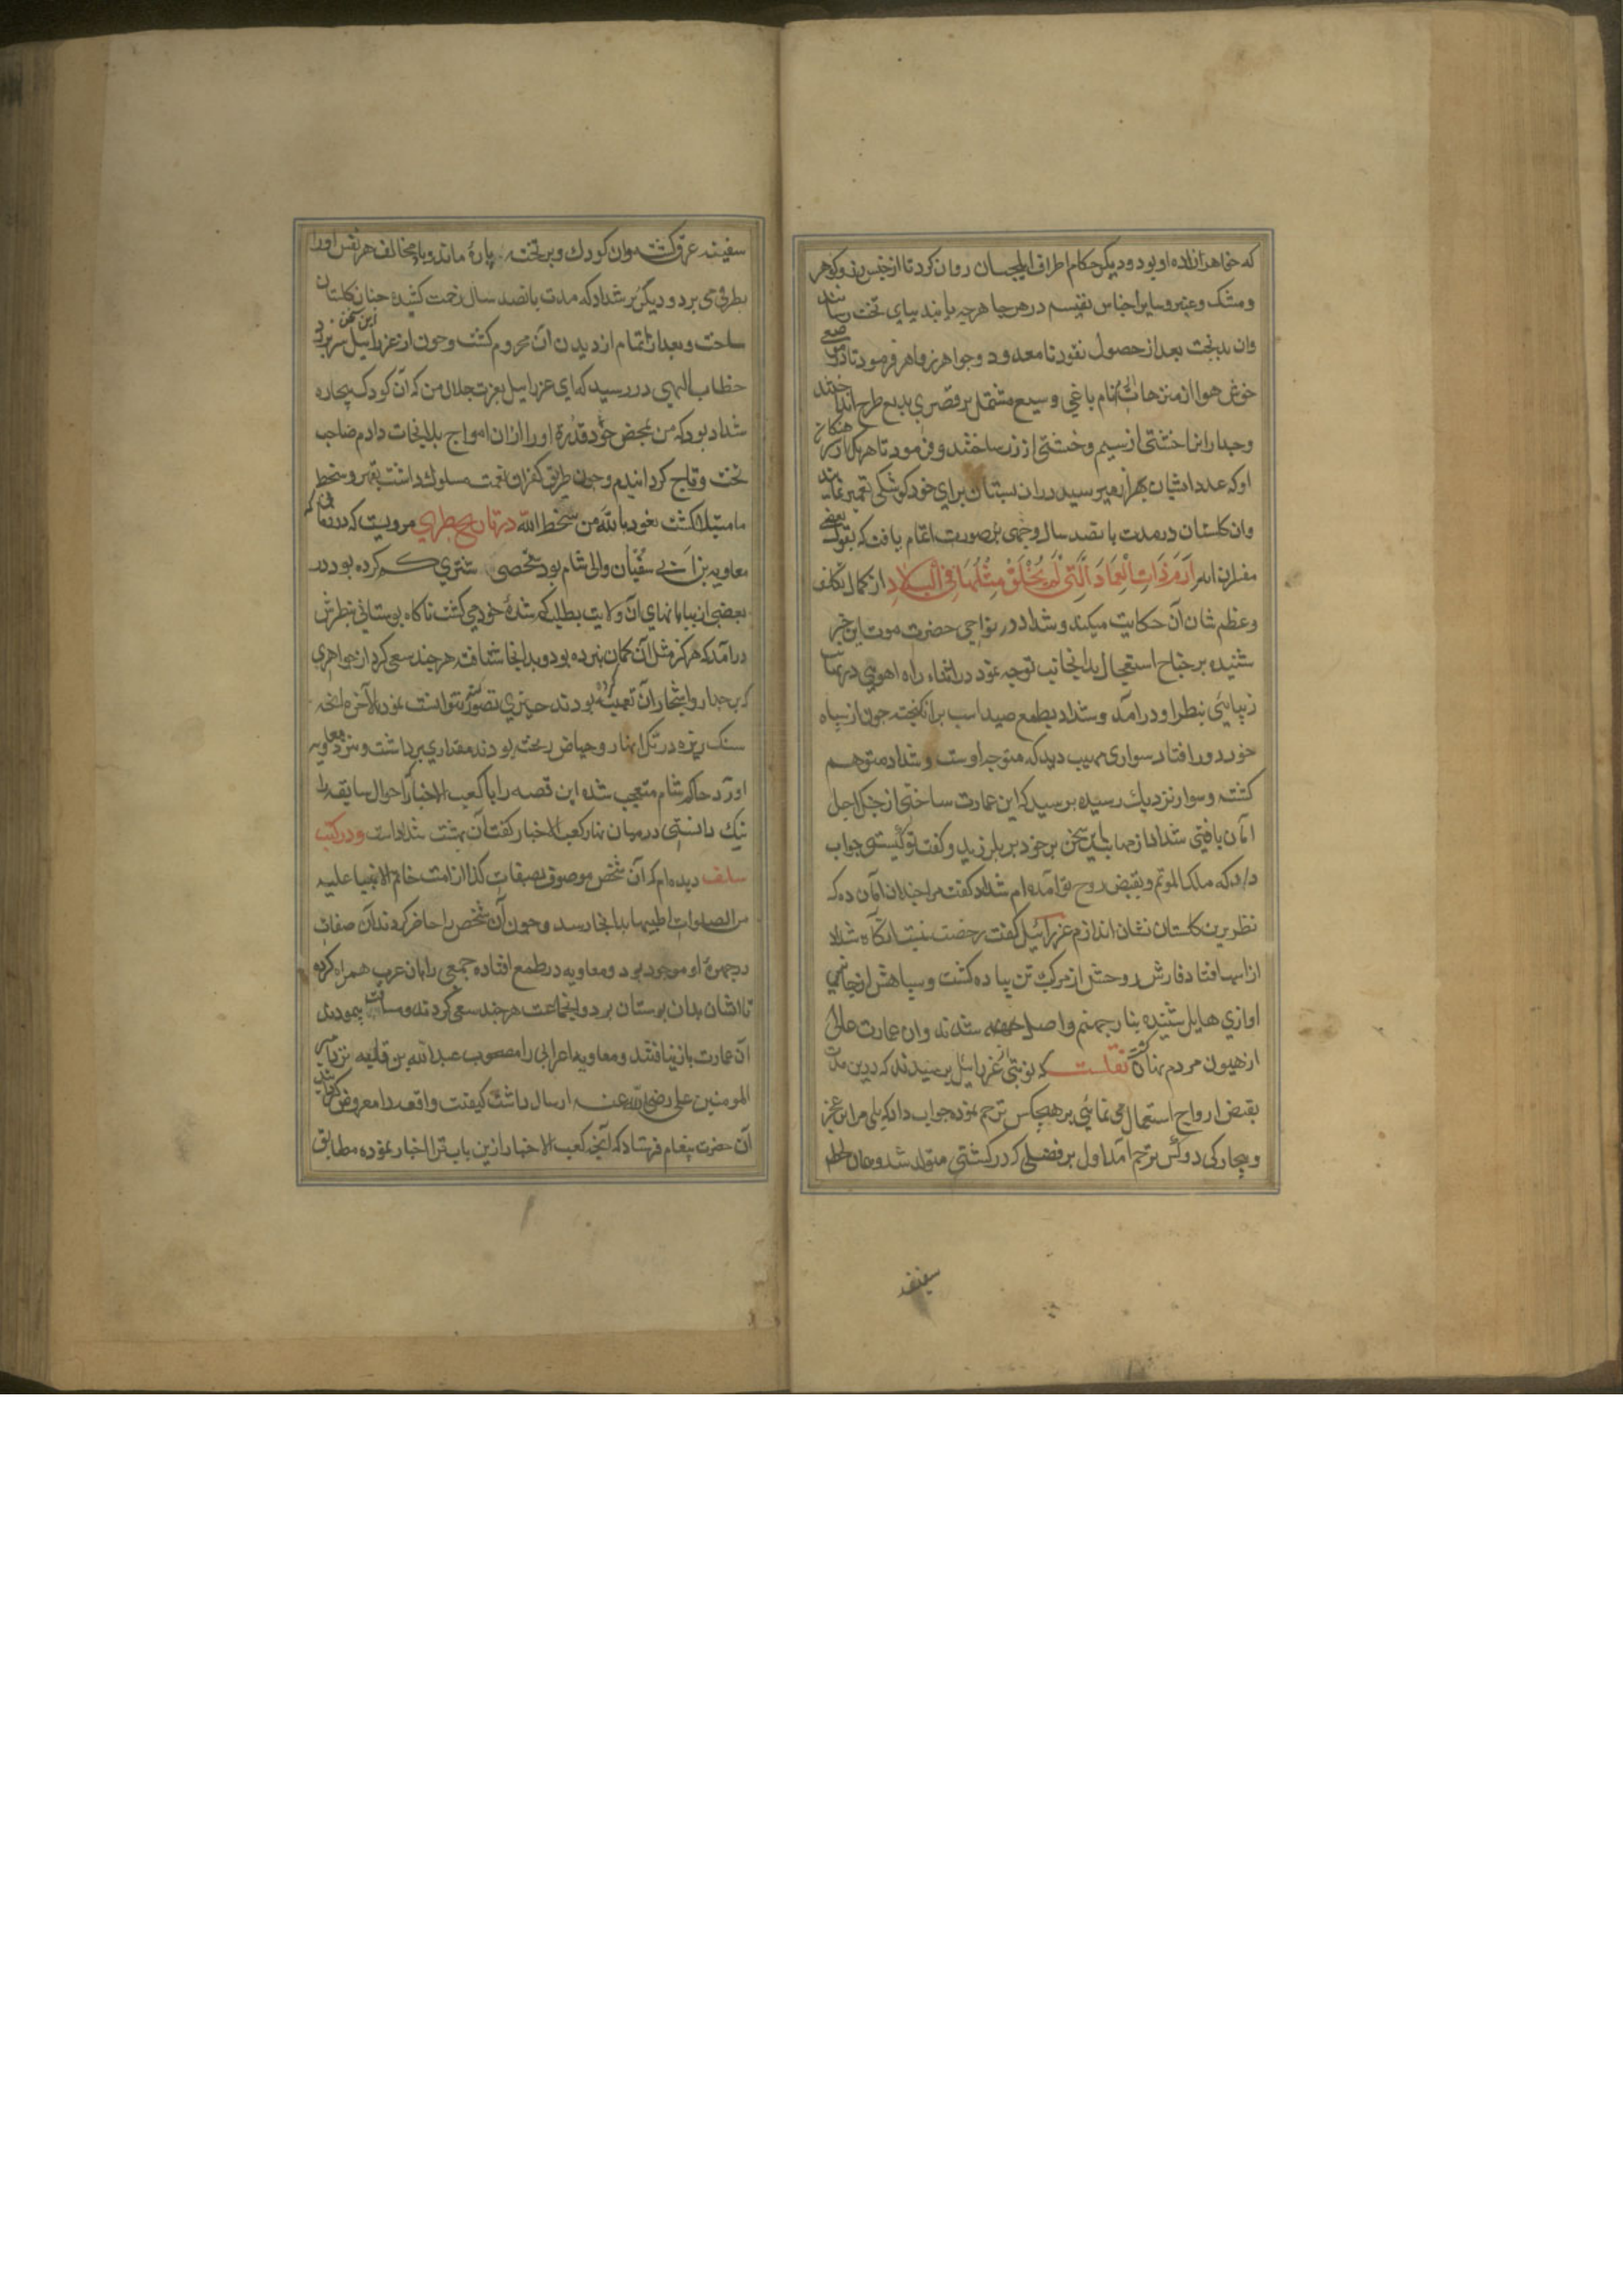 که خواهرزاده او بود و دیگر حکام اطراف ایلچیان روان کرد تا از جنس زر و گوهر
و مشک و عنبر و سایر اجناس نفیسه در هر جا هرچه یابند بپای تخت رسانند
وان بدبخت بعد از حصول نقود نامعدود و جواهر زواهر فرمود تا در موضعی
خوش هوا از متنزهات شام باغی وسیع مشتمل بر قصری بدیع طرح انداختند
و جدار انرا خشتی از سیم و خشتی از زر ساختند و فرمود تا هر یک از
او که عدد ایشان بهزار میرسید دران بستان برای خود کوشکی تعمیر نمایند
وان گلستان در مدت پانصد سال وجهی بر صورت اتمام یافت که بقول بعضی
مفسران ایه اِرَمَ ذَاتِ الْعِمَادِ الَّتِی لَمْ یُخْلَقْ مِثْلُهَا فِی الْبِلَادِ از کمال تکلف
و عظم شان آن حکایت میکند و شداد در نواحی حضرت موت این خبر
شنیده بر جناح استعجال بدانجانب توجه نمود در اثناء راه اهویی در نهایت
زیبایی بنظر او درآمد و شداد بطمع صید اسب برانکیخته چون از سپاه
خود دور افتاد سواری مهیب دید که متوجه اوست و شداد متوهم
کشته و سوار نزدیک رسیده پرسید که این عمارت ساختی از چنک اجل
امان یافتی شداد از مهابت این سخن بر خود بلرزید و کفت تو کیستی جواب
داد که ملک الموتم و بقبض روح تو آمده ام شداد کفت مرا چندان امان ده که
نظر برین کلستان نشان اندازم عزرائیل کفت رخصت نیست انکاه شداد
از اسب افتاد فارش روحش از مرکب تن پیاده کشت و سپاهش از جانبی
اوازی هایل شنیده بنار جهنم واصل شدند وان عمارت عالی
از عیون مردم پنهان کشت نقلست که نوبتی عزرائیل پرسیدند که درین مدت
بقبض ارواح اشتغال می نمائی بر هیچکس ترحم نموده جواب داد که بلی مرا بر عجز
و بیچارکی دو کس ترحم آمد اول بر طفلی که در کشتی متولد شد و همان لحظه
سفینه
سفینه غرق کشت وان کودک بر تخته پاره ماند و باد مخالف هر نفس اورا
بطرفی می برد و دیکر بر شداد که مدت پانصد سال زحمت کشیده چنان کلستان
ساخت و بعد از اتمام از دیدن آن محروم کشت و چون از عزرائیل این سخن سر برزد
خطاب الهی در رسید که ای عزرائیل بعزت جلال من که آن کودک بیچاره
شداد بود که من بمحض جود و قدرت اورا ازان امواج بلا نجات دادم صاحب
تخت و تاج کردانیدم و چون طریق کفران نعمت مسلوک داشت بقهر و سخط
ما مبتلا کشت نعوذ بالله من سخط الله در تاریخ طبری مرویست که در زمانی که
معاویه بن ابی سفیان والی شام بود شخصی شتری کم کرده بود در
بعضی از بیابانهای آن ولایت بطلب کم شدهٔ خود می کشت ناکاه بوستانی بنظرش
درآمد که هرکز مثل آن کمان نبرده بود و بدانجا شتافته هرچند سعی کرد از جواهری
که بر جدار و اشجار آن تعبیه کرده بودند چیزی تصور نتوانست نمود بالآخره از آنچه
سنک ریزه در تک انهار و حیاض ریخته بودند مقداری برداشت و نزد معاویه
آورد حاکم شام متعجب شده این قصه را با کعب الاخبار که احوال سابقه را
نیک دانستی در میان نهاد کعب الاخبار کفت آن بهشت شداد است و در کتب
سلف دیده ام که آن شخص موصوف بصفات کذا از امت خاتم الانبیا علیه
من الصلوات اطیبها بدانجا رسد و چون آن شخص را حاضر کردند آن صفات
در چهرهٔ او موجود بود و معاویه در طمع افتاده جمعی را بان عرب همراه کرده
تا ایشان بدان بوستان برد و انجماعت هرچند سعی کردند و مسافت پیمودند
آن عمارت باز نیافتند و معاویه اعرابی را مصحوب عبدالله بن قلابه نزد امیر
المومنین علی رضی الله عنه ارسال داشت کیفیت واقعه را معروض کردانید
آن حضرت پیغام فرستاد که آنچه کعب الاخبار ازین باب ترا اخبار نموده مطابق